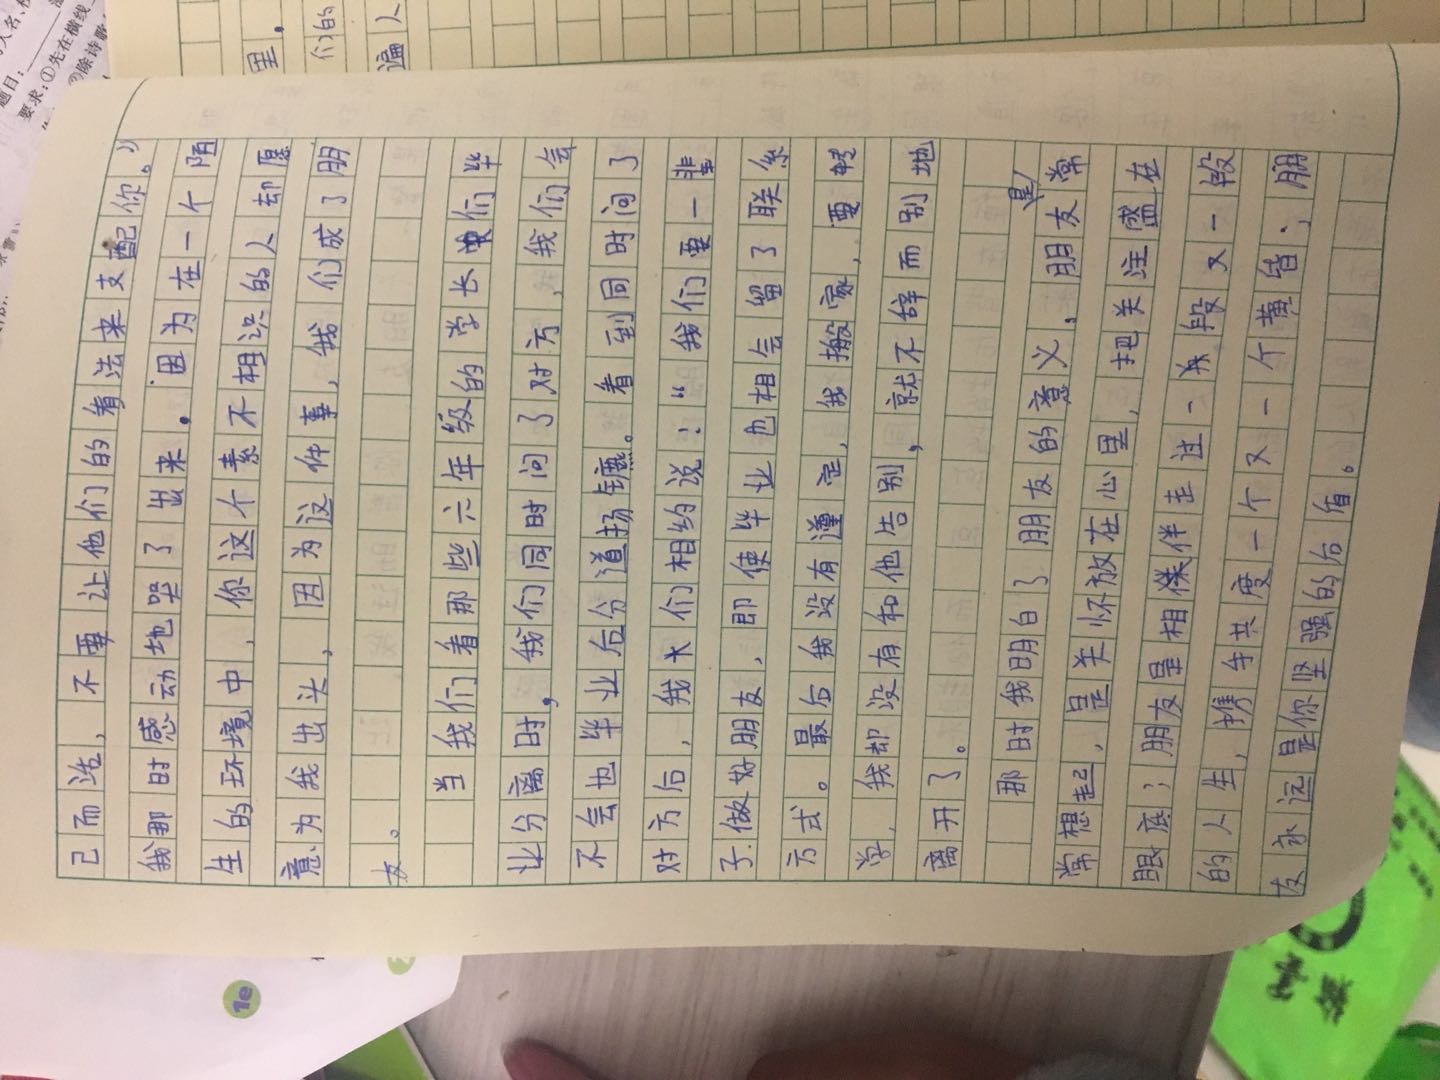 己而活，不要让他们的看法来支配你。”
我那时感动地哭了出来。因为在一个陌
生的环境中，你这个素不相识的人却愿
意为我出头，因为这件事，我们成了朋
友。
当我们看那些六年级的学长们毕
业分离时，我们同时问了对方，我们会
不会也毕业后分道扬镳。看到同时问了
对方后，我们相约说：“我们要一辈
子做好朋友，即使毕业也相会留了联系
方式。最后我没有遵定，我搬家，要转
学，我却没有和他告别，就不辞而别地
离开了。
那时我明白了朋友的意义，朋友是常
常想起，是关怀放在心里，把关注盛在
眼底；朋友是相伴走过一段又一段
的人生，携手共度一个又一个黄昏；朋
友永远是你坚强的后盾。
里，
们的
遍人
题目：
要求：①先在横线
除诗歌
1e